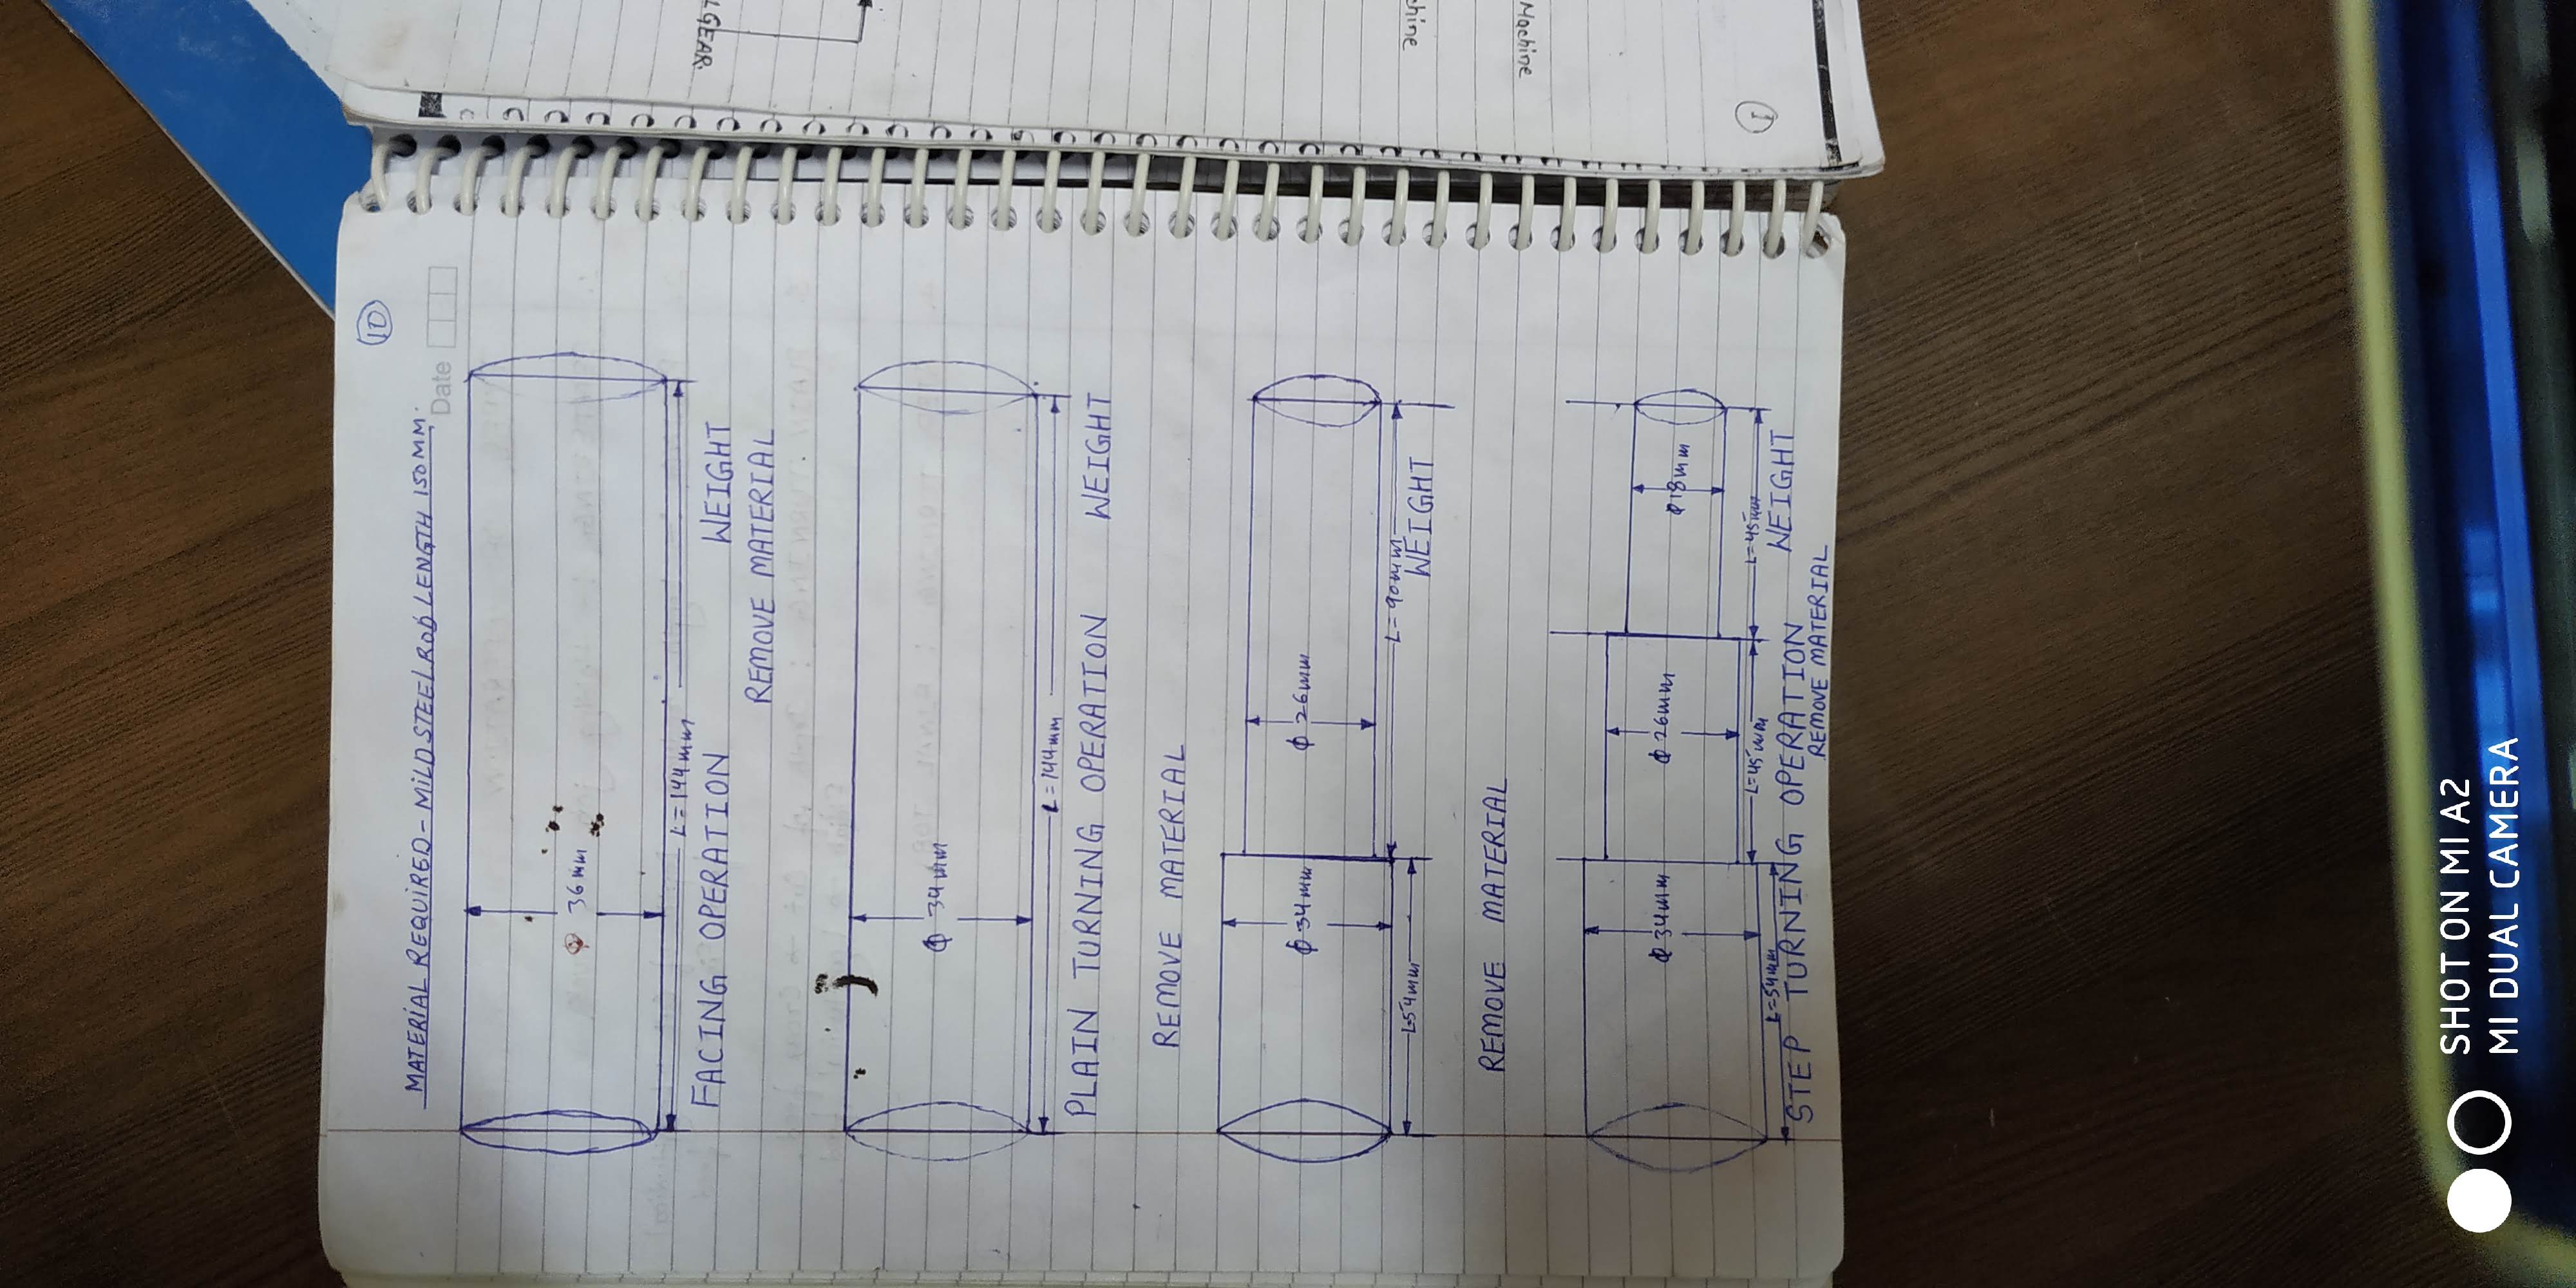 10
MATERIAL REQUIRED - MILD STEEL ROD LENGTH 150MM.
Date
Φ 36mm
L = 144mm
FACING OPERATION WEIGHT
REMOVE MATERIAL
ϕ 34mm
L = 144mm
PLAIN TURNING OPERATION WEIGHT
REMOVE MATERIAL
ϕ 34mm ϕ 26mm
L=54mm L= 90mm
WEIGHT
REMOVE MATERIAL
ϕ 34mm ϕ 26mm ϕ18mm
L=54mm L=45mm L=45mm
STEP TURNING OPERATION WEIGHT
REMOVE MATERIAL
GEAR
Machine
1
SHOT ON MI A2
MI DUAL CAMERA